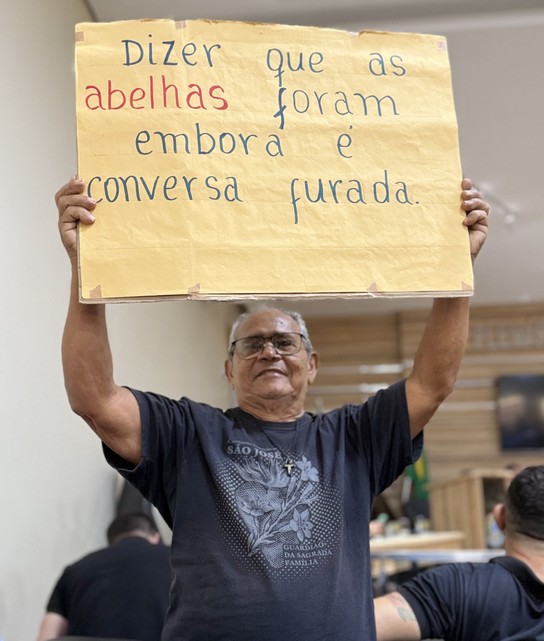 Dizer que as
abelhas foram
embora é
conversa furada.
SÃO JOSÉ
GUARDIÃO
DA SAGRADA
FAMÍLIA